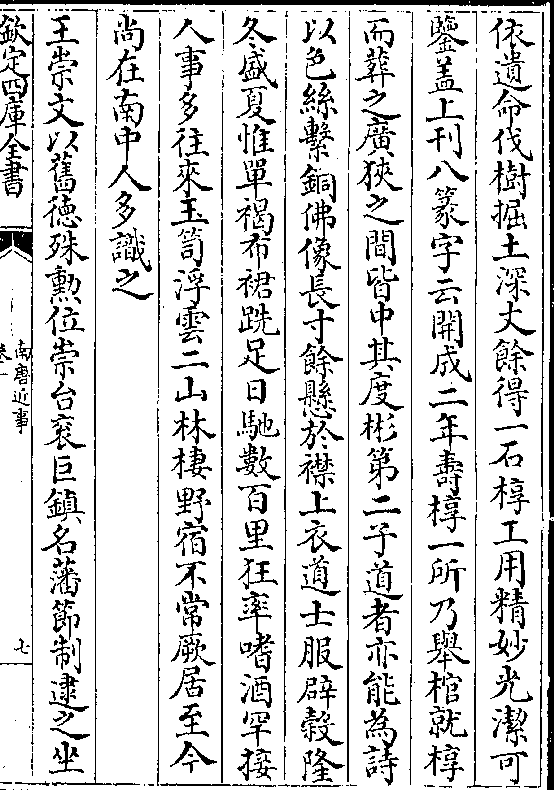 依遺命伐樹掘土深丈餘得一石椁工用精妙光潔可
鑒盖上刊八篆字云開成二年壽椁一所乃舉棺就椁
而葬之廣狹之間皆中其度彬第二子道者亦能為詩
以色絲繫銅佛像長寸餘懸於襟上衣道士服辟穀隆
冬盛夏惟單褐布裙跣足日馳數百里狂率嗜酒罕接
人事多往來玉笥浮雲二山林棲野宿不常厥居至今
尚在南中人多識之
王崇文以舊徳殊勲位崇台衮巨鎮名藩節制逮之坐
欽定四庫全書
南唐近事
卷一
七